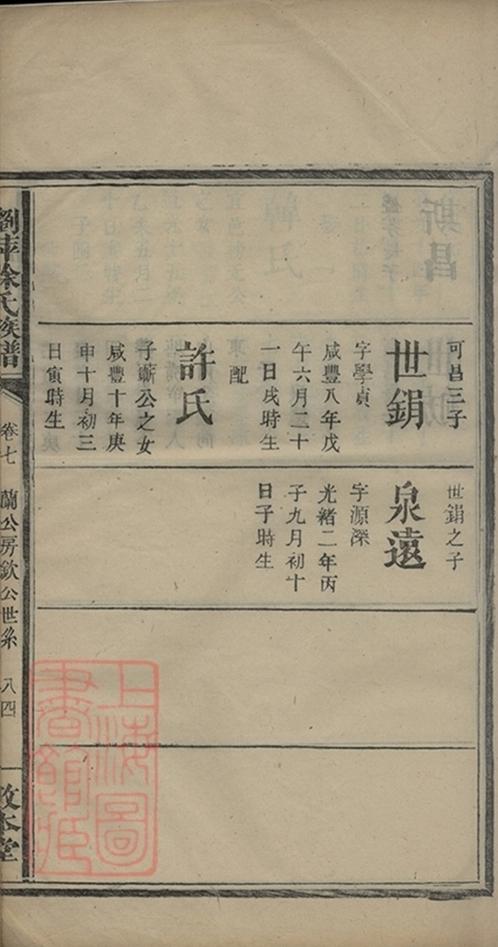 可昌三子
世鋗
字學貞
咸豐八年戊
午六月二十
一日戌時生
配
許氏
子蘄公之女
咸豐十年庚
申十月初三
日寅時生
世鋗之子
泉遠
字源深
光緒二年丙
子九月初十
日子時生
瀏萍徐氏族譜
卷七
蘭公房欽公世系
八四
敦本堂
上海圖
書館藏